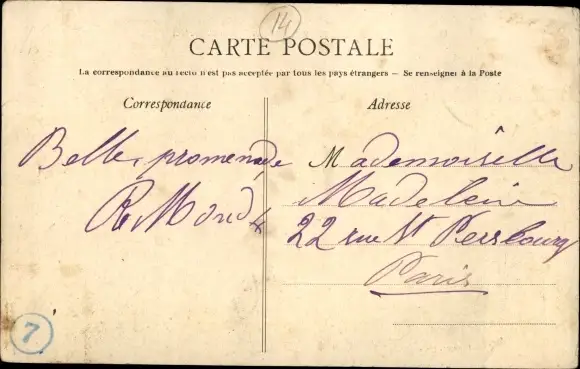 14
CARTE POSTALE
La correspondance au recto n'est pas acceptée par tous les pays étrangers — Se renseigner à la Poste
Correspondance
Adresse
Belle promenade
Mademoiselle
Madeleine
22 rue St Perbourg
Paris
7